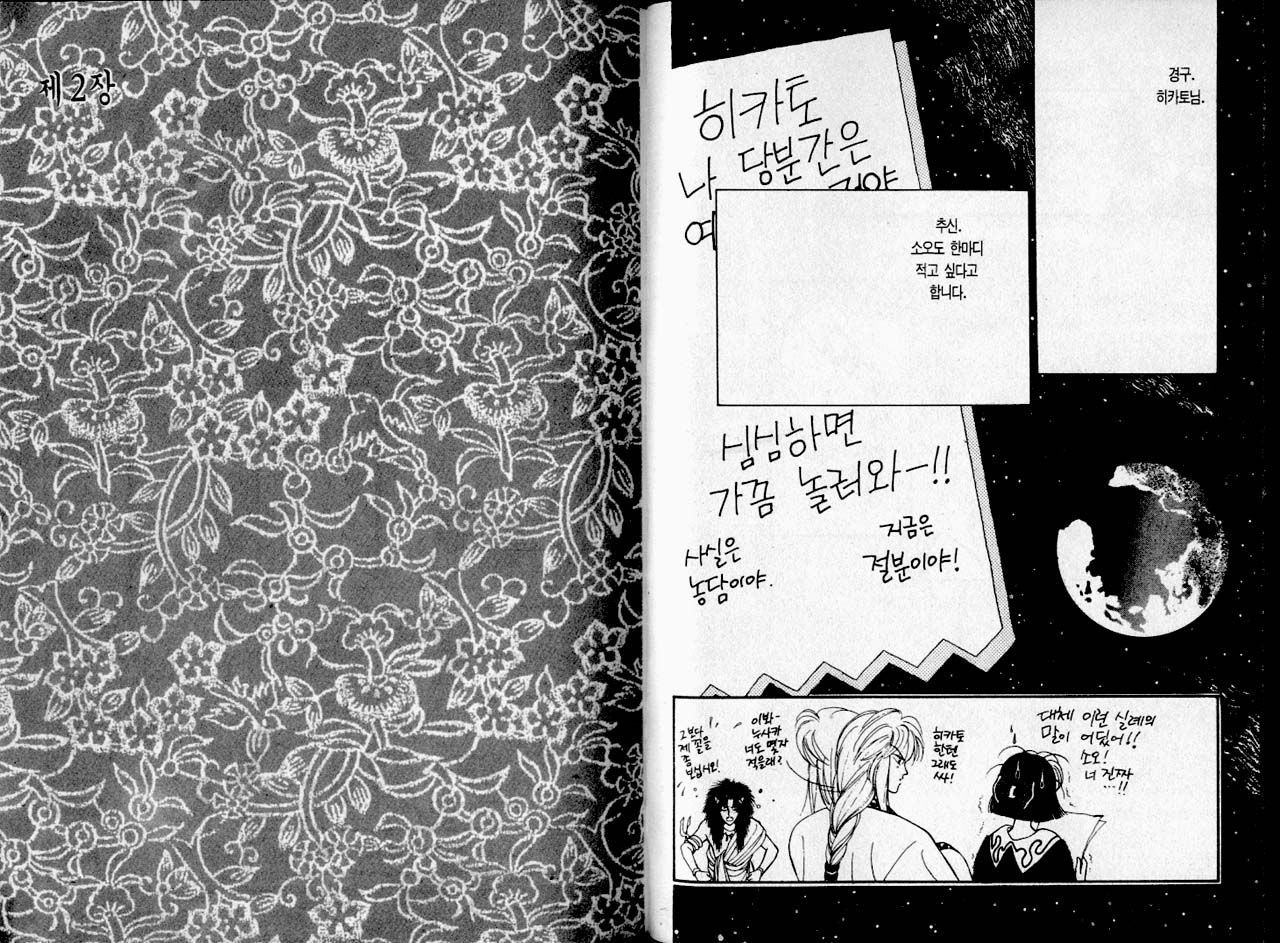 경구.
히카토님.
히카토
나 당분간은
여
추신.
소오도 한마디
적고 싶다고
합니다.
심심하면
가끔 놀러와-!!
지금은
절분이야!
사실은
농담이야.
대체 이런 실례의
말이 어딨어!!
소오!
너 진짜
…!!
히카토
한텐
그래도
싸!
이봐-
누사카
너도 몇자
적을래?
그보다
제 꼴을
좀
보십시오!
제2장